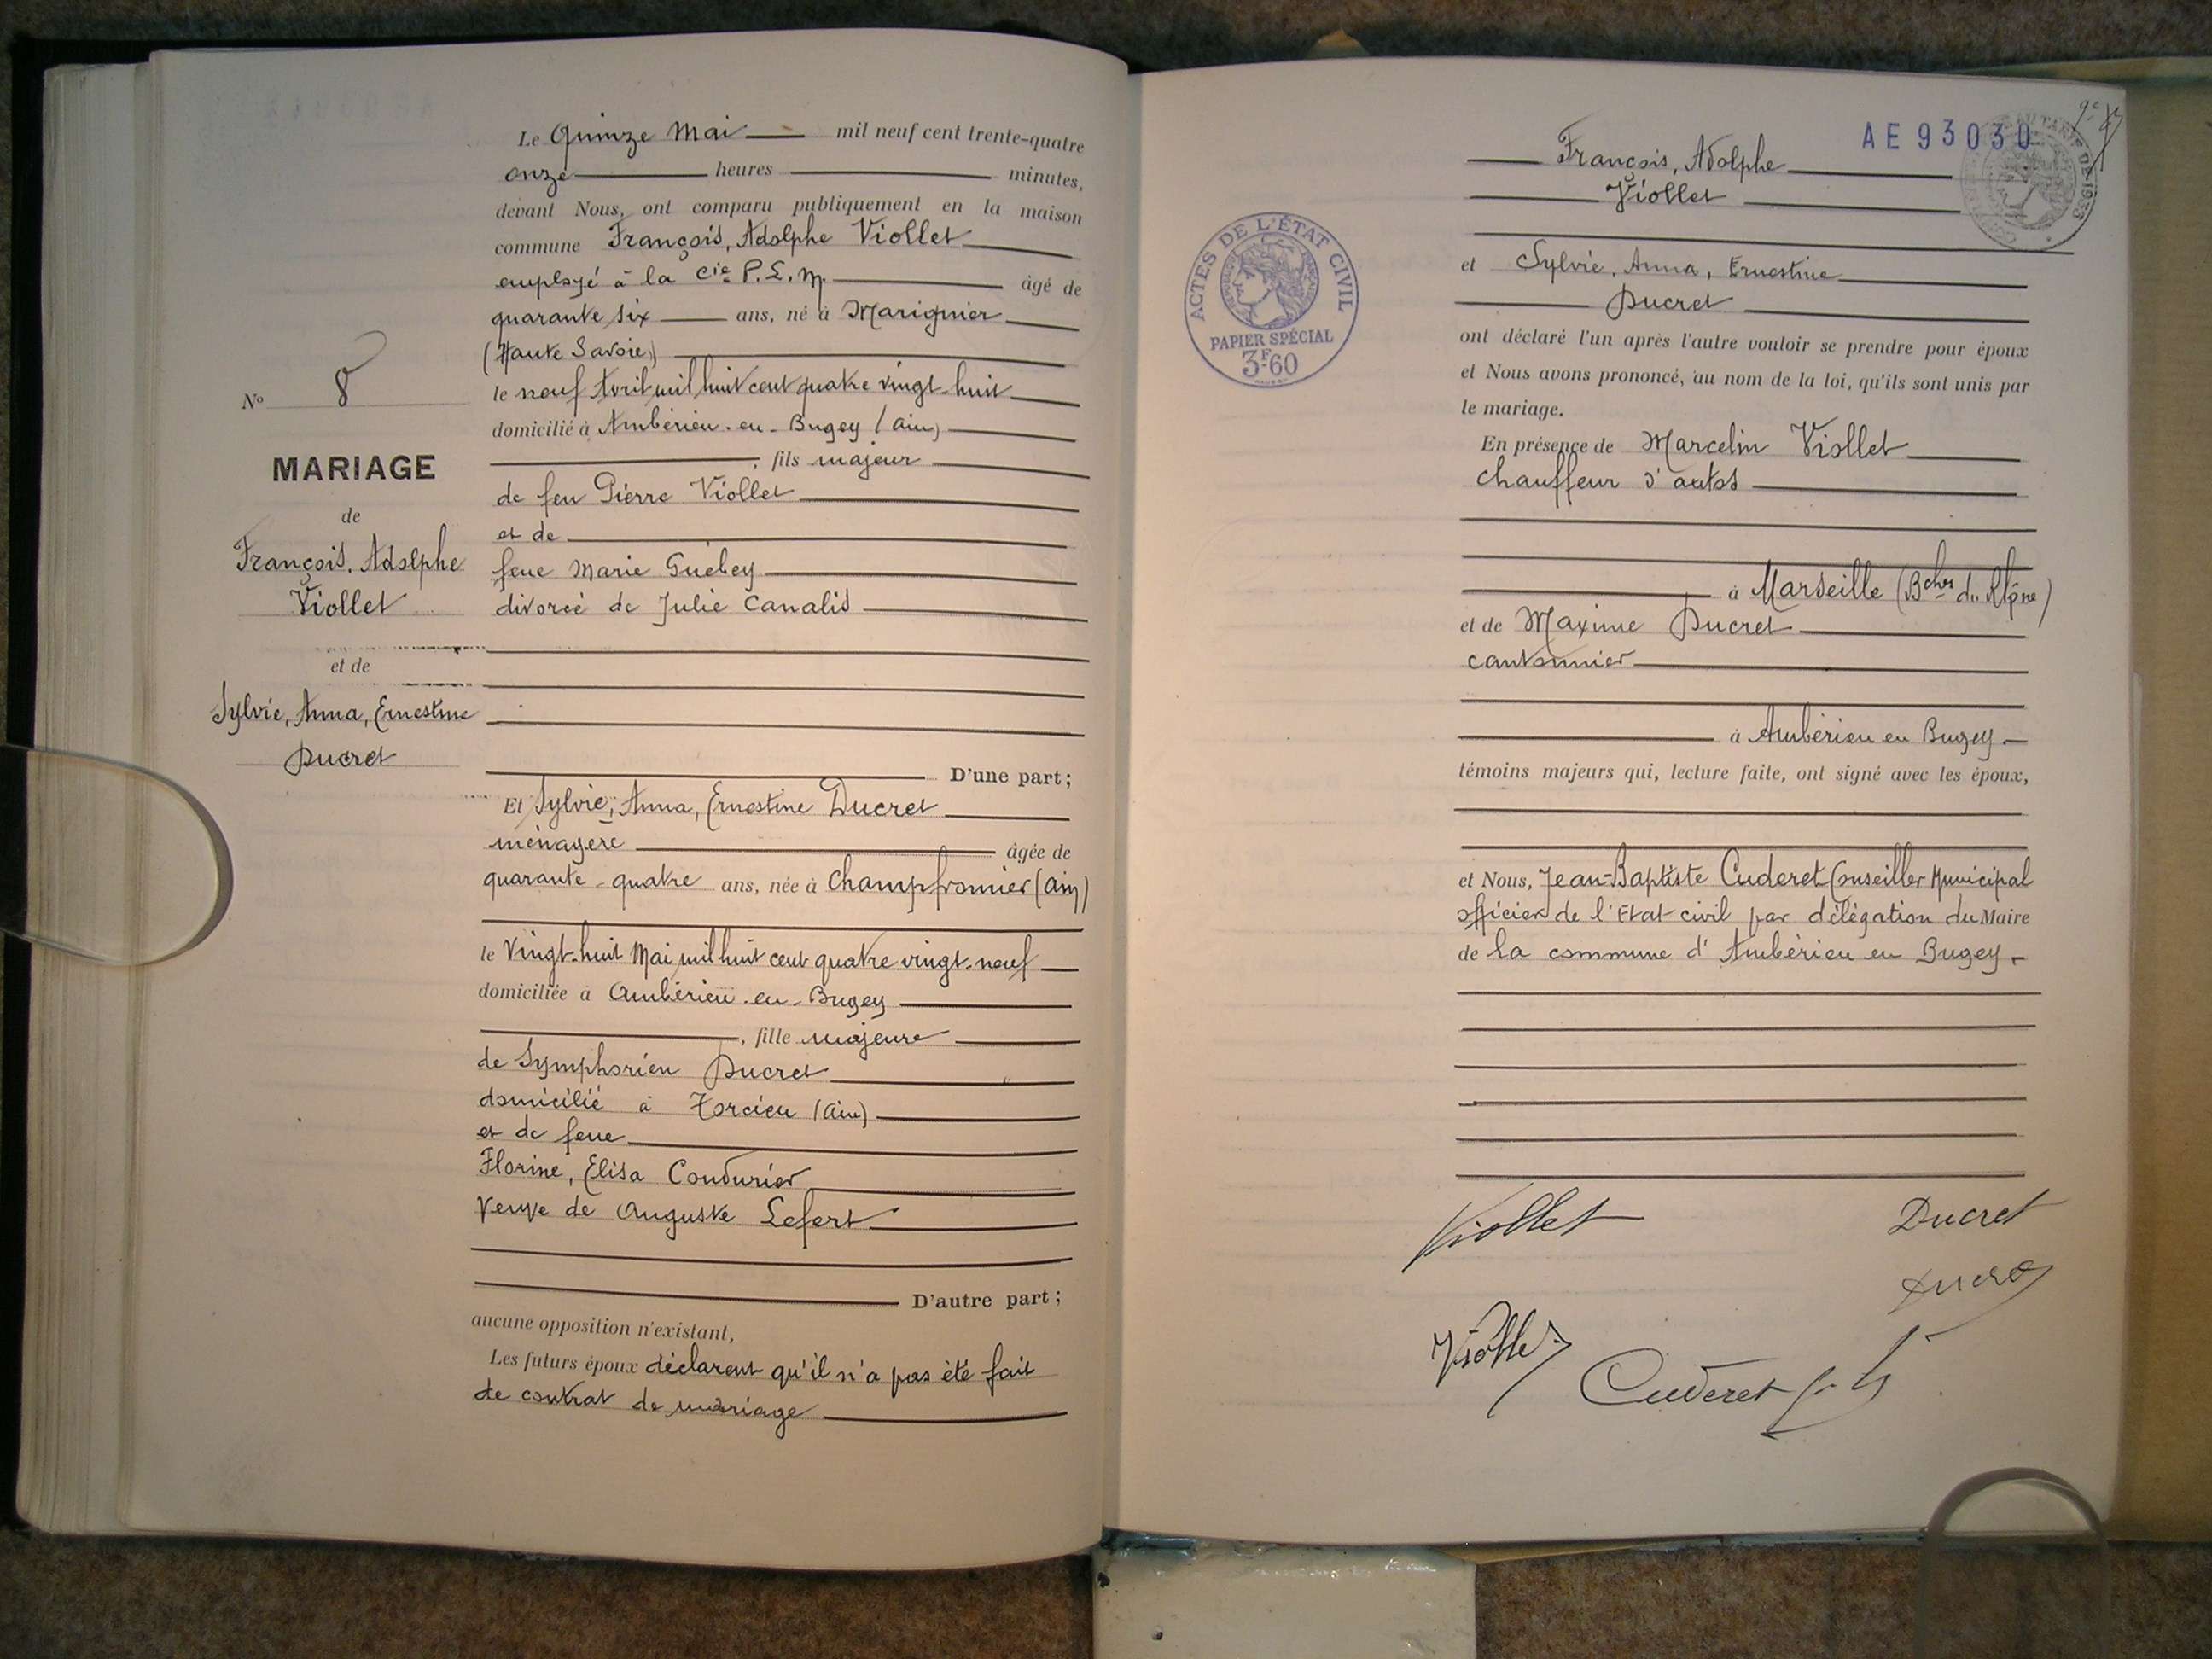 Le Quinze Mai mil neuf cent trente-quatre
onze heures minutes,
devant Nous, ont comparu publiquement en la maison
commune François, Adolphe Viollet
employé à la Cie P.L.M. âgé de
quarante six ans, né à Marignier
(Haute Savoie)
le neuf Avril mil huit cent quatre vingt-huit
domicilié à Ambérieu-en-Bugey (Ain)
, fils majeur
de feu Pierre Viollet
et de
feue Marie Guébey
divorcé de Julie Canalis
D'une part;
Et Sylvie, Anna, Ernestine Ducret
ménagère âgée de
quarante-quatre ans, née à Champfromier (Ain)
le Vingt-huit Mai mil huit cent quatre vingt-neuf
domiciliée à Ambérieu-en-Bugey
, fille majeure
de Symphorien Ducret
domicilié à Torcieu (Ain)
et de feue
Florine, Elisa Coudurier
Veuve de Auguste Lefert
D'autre part;
aucune opposition n'existant,
Les futurs époux déclarent qu'il n'a pas été fait
de contrat de mariage
No 8
MARIAGE
de
François, Adolphe
Viollet
et de
Sylvie, Anna, Ernestine
Ducret
AE93030
François, Adolphe
Viollet
et Sylvie, Anna, Ernestine
Ducret
ACTES DE L'ÉTAT CIVIL
PAPIER SPÉCIAL
3F60
ont déclaré l'un après l'autre vouloir se prendre pour époux
et Nous avons prononcé, au nom de la loi, qu'ils sont unis par
le mariage.
En présence de Marcelin Viollet
chauffeur d'autos
à Marseille (Bches du Rhône)
et de Maxime Ducret
cantonnier
à Ambérieu en Bugey
témoins majeurs qui, lecture faite, ont signé avec les époux,
et Nous, Jean-Baptiste Cuderet Conseiller Municipal
officier de l'Etat civil par délégation du Maire
de la commune d'Ambérieu en Bugey
Viollet Ducret
Ducret
Viollet
Cuderet